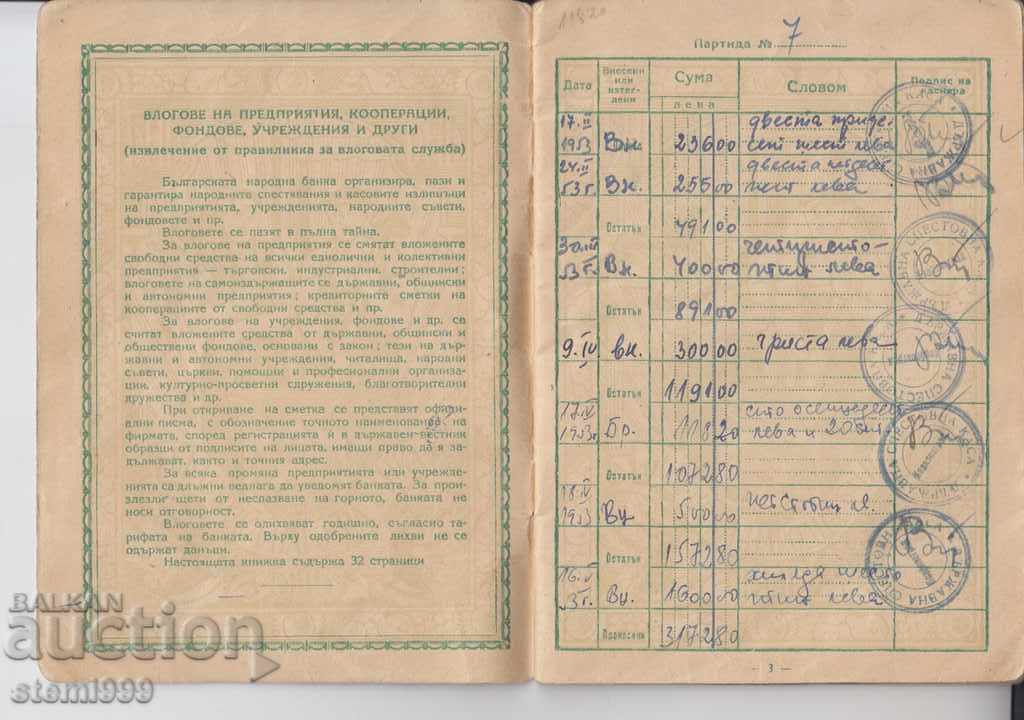 ВЛОГОВЕ НА ПРЕДПРИЯТИЯ, КООПЕРАЦИИ,
ФОНДОВЕ, УЧРЕЖДЕНИЯ И ДРУГИ
(извлечение от правилника за влоговата служба)
Българската народна банка организира, пази и
гарантира народните спестявания и касовите излишъци
на предприятията, учрежденията, народните съвети,
фондовете и пр.
Влоговете се пазят в пълна тайна.
За влогове на предприятия се смятат вложените
свободни средства на всички еднолични и колективни
предприятия — търговски, индустриални, строителни;
влоговете на самоиздържащите се държавни, общински
и автономни предприятия; кредиторните сметки на
кооперациите от свободни средства и пр.
За влогове на учреждения, фондове и др. се
считат вложените средства от държавни, общински и
обществени фондове, основани с закон; тези на дър-
жавни и автономни учреждения, читалища, народни
съвети, църкви, помощни и професионални организа-
ции, културно-просветни сдружения, благотворителни
дружества и др.
При откриване на сметка се представят офици-
ални писма, с обозначение точното наименование на
фирмата, според регистрацията ѝ в държавен вестник
образци от подписите на лицата, имащи право да я
задължават, както и точния адрес.
За всяка промяна предприятията или учрежде-
нията са длъжни веднага да уведомят банката. За про-
излезли щети от неспазване на горното, банката не
носи отговорност.
Влоговете се олихвяват годишно, съгласно та-
рифата на банката. Върху одобрените лихви не се
одържат данъци.
Настоящата книжка съдържа 32 страници
BALKAN
auction
stemi999
11820
Партида № 7
Дата Внесени или изтег- лени Сума лева Словом Подпис на касиера
17.II 1953 Вн. 236 00 двеста триде- сет шест лева
24.II 53 г. Вн. 255 00 двеста петдесет пет лева
Остатък 491 00
30.III 53 г. Вн. 400 00 четиристо- тин лева
Остатък 891 00
9.IV Вн. 300 00 триста лева
Остатък 1191 00
17.IV 1953 г. Бр. 118 20 сто осемнадесет лева и 20 ст.
Остатък 1072 80
18.IV 1953 Вн. 500 00 петстотин лв.
Остатък 1572 80
16.V 53 г. Вн. 1600 00 хиляда шесто тин лева
Пренесени 3172 80
ДЪРЖАВНА СПЕСТОВНА КАСА
— 3 —